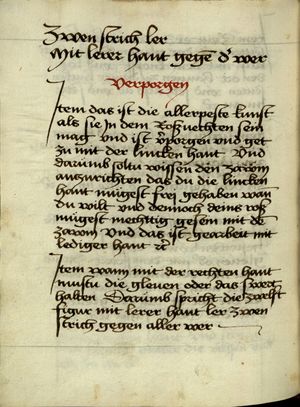 Zwen strich ler
Mit lerer hant gege͂ d' wer
Verporgen
Item das ist die allerpeste kunst
als sie In dem Roßvechten sein
mag vnd ist v͂porgen vnd get
zu mit der lincken hant Vnd
darumb soltu wissen den zawm
aus zurichten das du die lincken
hant mügest frei gehaben wan̄
du wilt vnd dennoch deins roß
mügest mechtig gesein mit de͂
zawm Vnd das ist gearbeit mit
lediger hant rc
Item wann mit der rechten hant
mustu die gleuen oder das swert
halten Darumb spricht die zwelft
figur mit lerer hant ler zwen
strich gegen aller wer